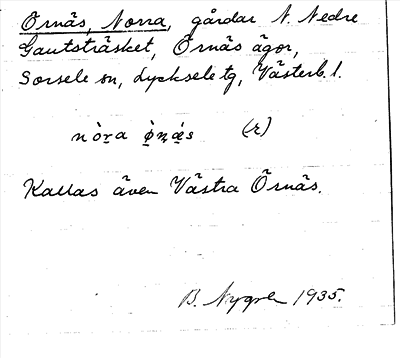 Örnäs, Norra, gårdar N. Nedre
Gautsträsket, Örnäs ägor,
Sorsele sn, Lycksele tg, Västerb. l.
nò̱ra ò̱ṇæ̱s (r)
Kallas även Västra Örnäs.
B. Nygren 1935.